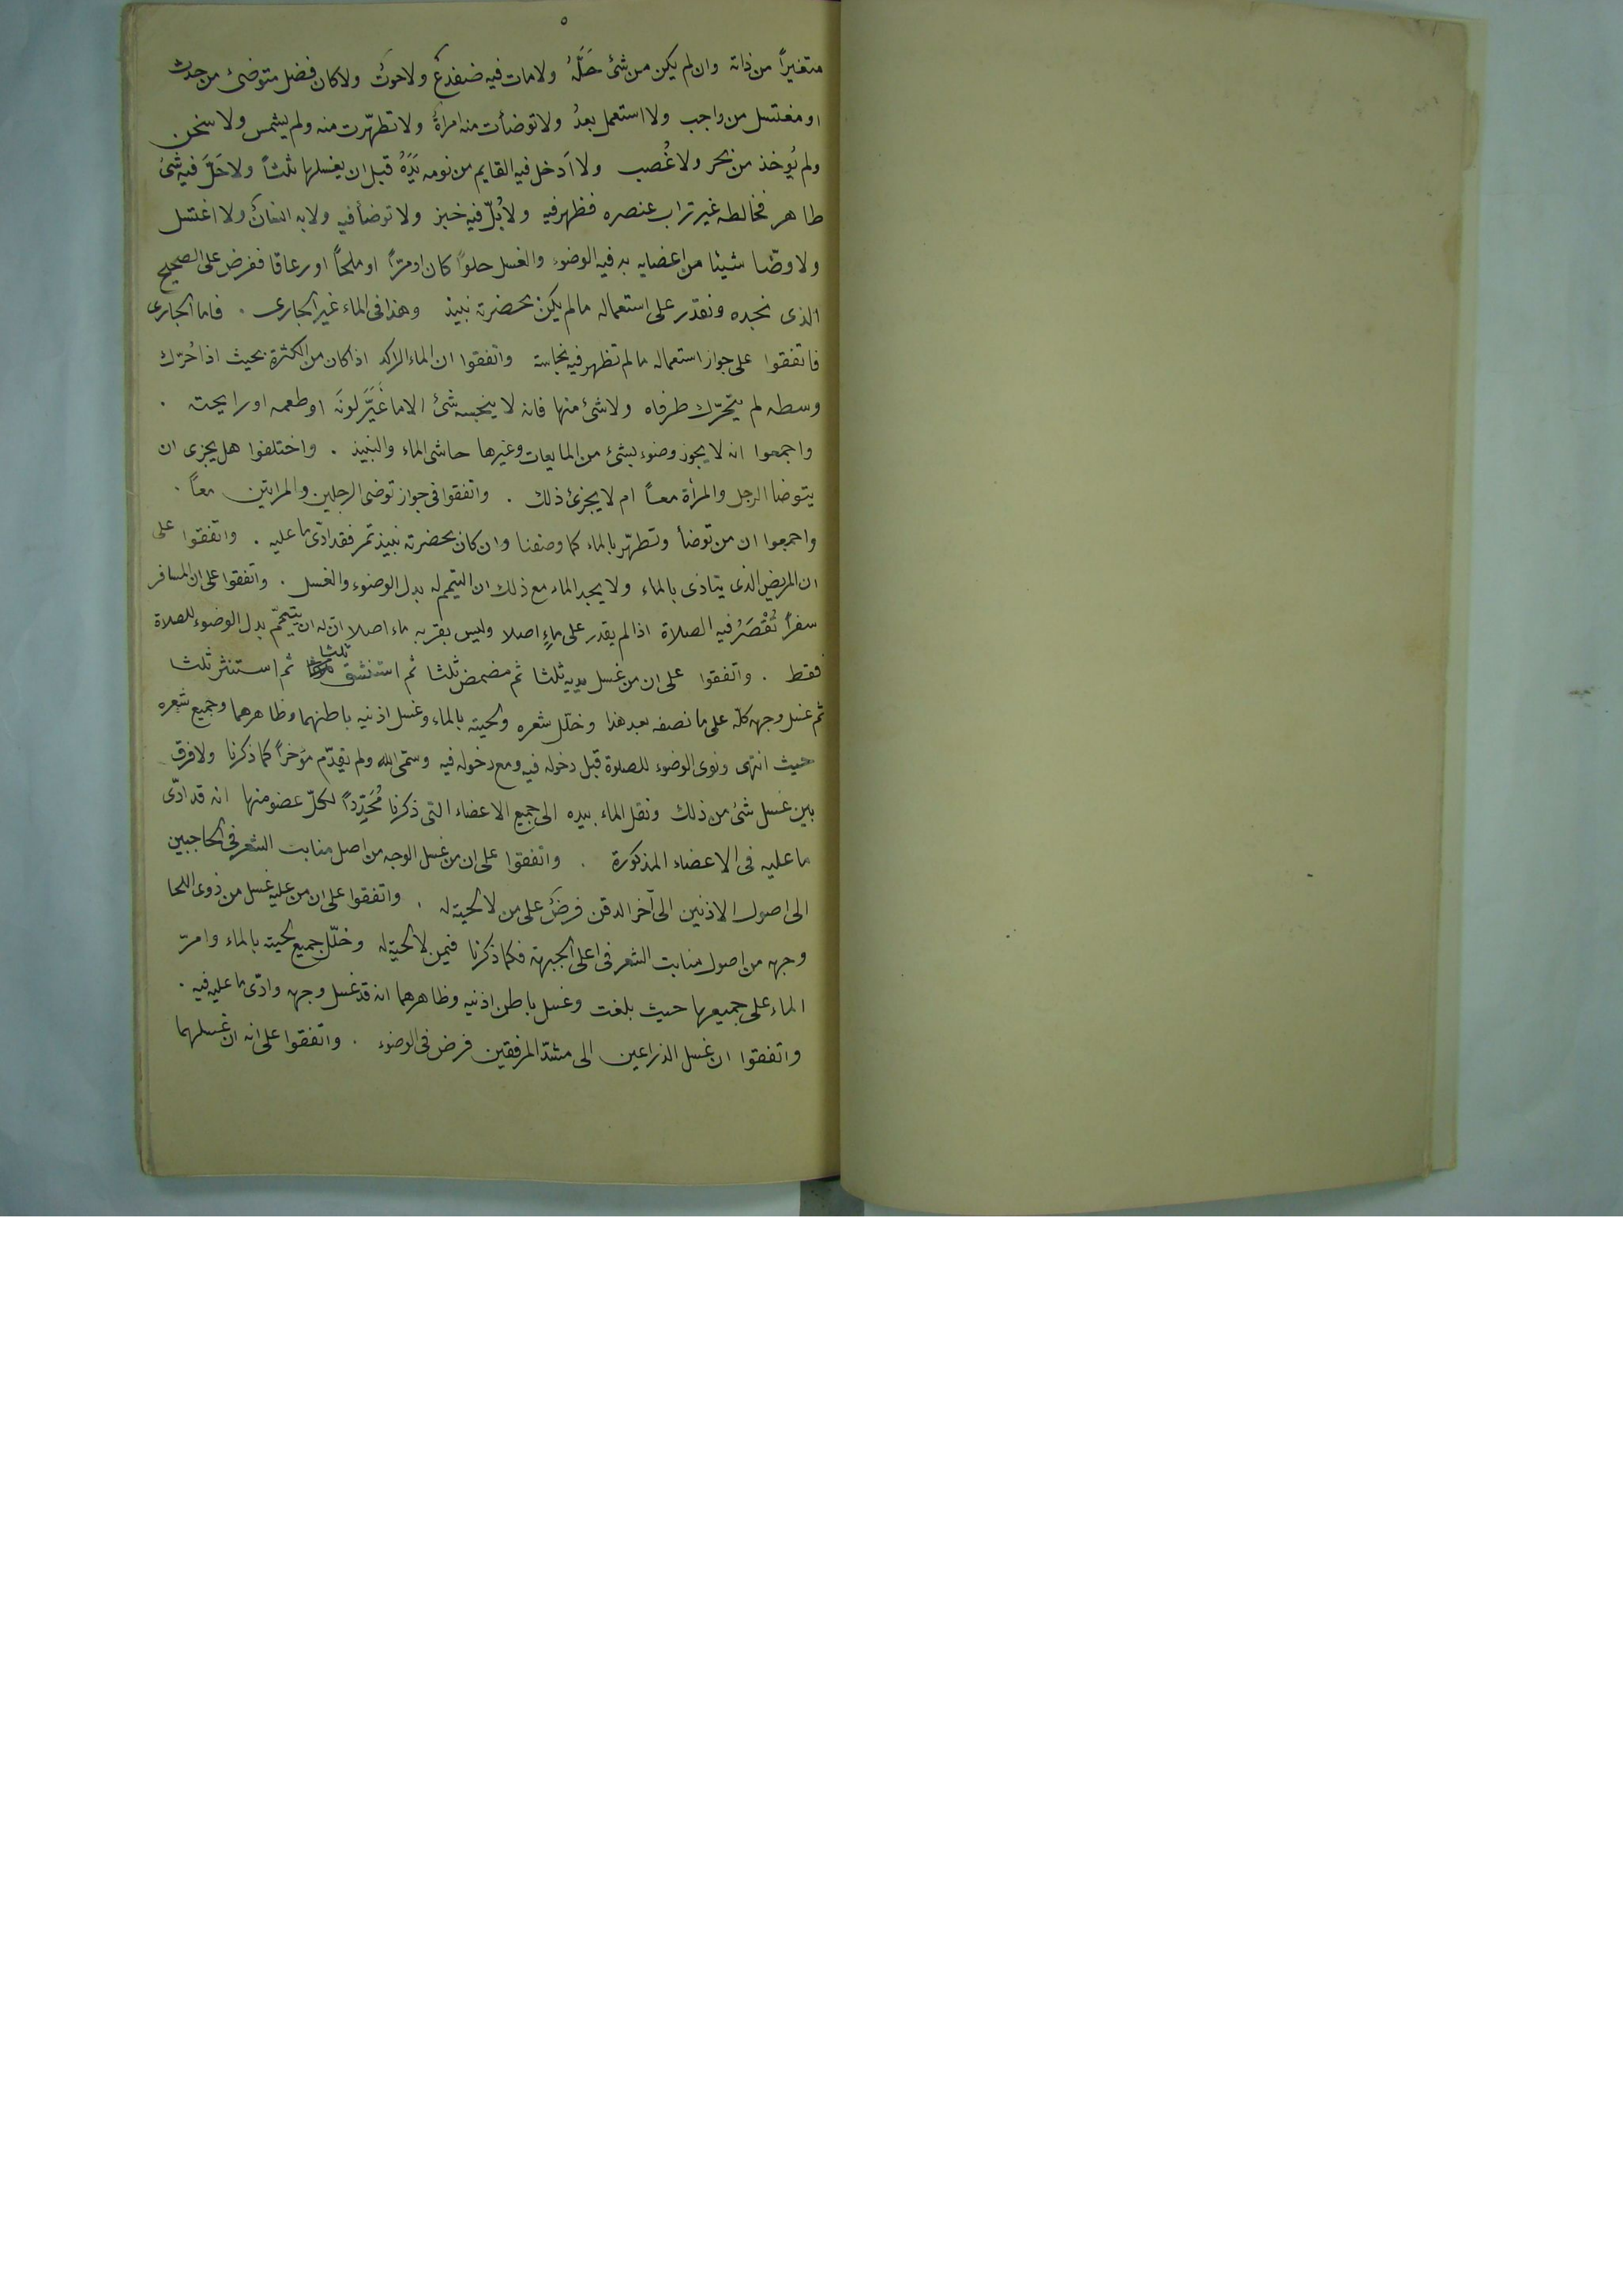 ٥
متغيراً من ذاته وان لم يكن من شئ حَلَّهُ ولا مات فيه ضفدعٌ ولا حوتٌ ولا كان فضل متوضئ من حدث
او مغتسل من واجب ولا استعمل بعدُ ولا توضأت منه امراةٌ ولا تطهّرت منه ولم يشمس ولا سخن
ولم يُوخذ من بحر ولا غُصب ولا اَدخل فيه القايم من نومه يَدَهُ قبل ان يغسلها ثلثاً ولا حَلَّ فيه شئٌ
طاهر فخالطه غير تراب عنصره فظهر فيه ولا بُلّ فيه خبز ولا توضأ فيه ولا به انسانٌ ولا اغتسل
ولا وضّا شيئا من اعضايه به فيه الوضوء والغسل حلواً كان او مرّاً او ملحاً او زعاقا ففرض على الصحيح
الذى نجده ونقدر على استعماله مالم يكن بحضرته نبيذ وهذا فى الماء غير الجارى . فاما الجارى
فاتفقوا على جواز استعماله مالم تظهر فيه نجاسة واتفقوا ان الماء الراكد اذا كان من الكثرة بحيث اذا حُرّك
وسطه لم يتحرّك طرفاه ولا شئ منها فانه لا ينجسه شئ الا ما غَيَّرَ لونَه او طعمه او رايحته .
واجمعوا انه لا يجوز وضوء بشئ من المايعات وغيرها حاشى الماء والنبيذ . واختلفوا هل يجزى ان
يتوضا الرجل والمرأة معاً ام لا يجزئ ذلك . واتفقوا فى جواز توضى الرجلين والمراتين معاً .
واجمعوا ان من توضأ وتطهّر بالماء كما وصفنا وان كان بحضرته نبيذ تمر فقد ادّى ما عليه . واتفقوا على
ان المريض الذى يتاذى بالماء ولا يجد الماء مع ذلك ان التيمم له بدل الوضوء والغسل . واتفقوا على ان المسافر
سفراً تُقْصَرُ فيه الصلاة اذا لم يقدر على ماءٍ اصلا وليس بقربه ماء اصلا انّ له ان يتيمّم بدل الوضوء للصلاة
فقط . واتفقوا على ان من غسل يديه ثلثا ثم مضمض ثلثا ثم استنشق ثلثا ثم استنثر ثلثا
ثم غسل وجهه كلّه على ما نصفه بعد هذا وخلّل شعره ولحيته بالماء وغسل اذنيه باطنهما وظاهرهما وجميع شعره
حيث انتهى ونوى الوضوء للصلوة قبل دخوله فيه ومع دخوله فيه وسمّى الله ولم يقدّم مؤخراً كما ذكرنا ولا فرق
بين غسل شئ من ذلك ونقل الماء بيده الى جميع الاعضاء التى ذكرنا مُجَدِّداً لكلّ عضو منها انه قد ادّى
ما عليه فى الاعضاء المذكورة . واتفقوا على ان من غسل الوجه من اصل منابت الشعر فى الحاجبين
الى اصول الاذنين الى آخر الدقن فرضٌ على من لا لحية له . واتفقوا على ان من عليه غسل من ذوى اللحا
وجهه من اصول منابت الشعر فى اعلى الجبهة فكما ذكرنا فيمن لا لحية له وخلّل جميع لحيته بالماء وامرّ
الماء على جميعها حيث بلغت وغسل باطن اذنيه وظاهرهما انه قد غسل وجهه وادّى ما عليه فيه .
واتفقوا ان غسل الذراعين الى مشدّ المرفقين فرض فى الوضوء . واتفقوا على انه ان غسلهما